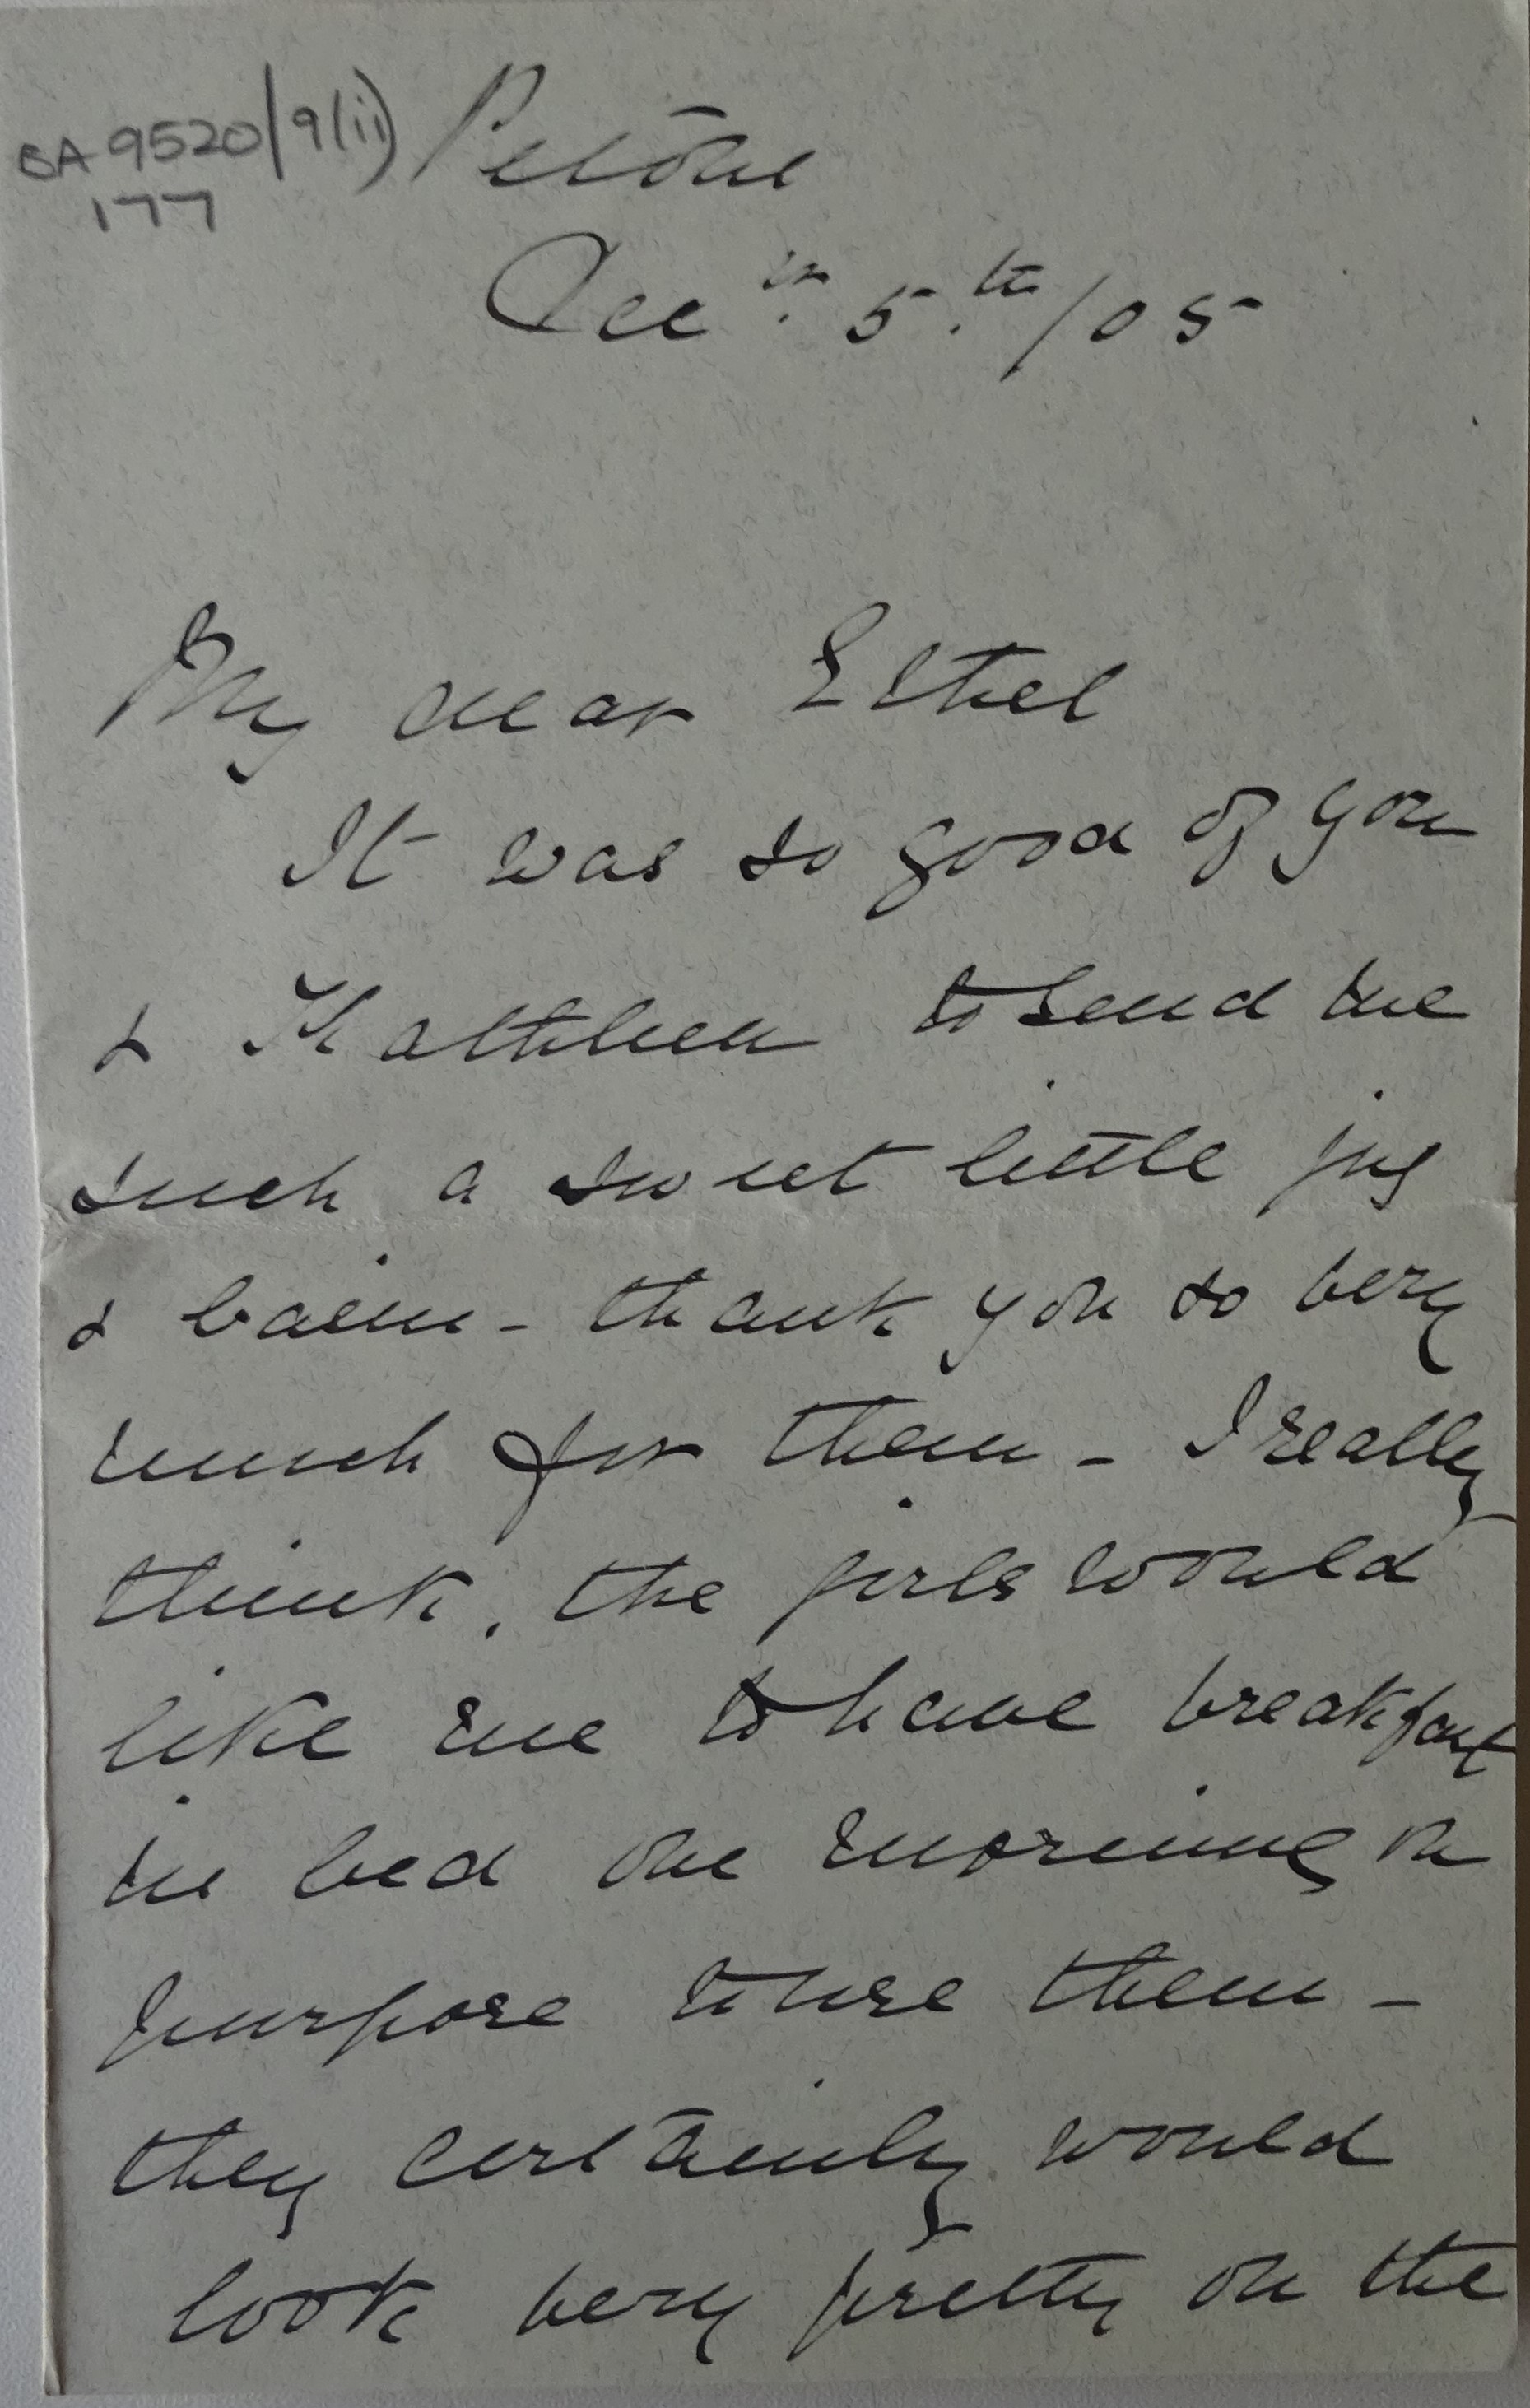 BA 9520/9(ii)
177
Petone
Decr. 5.th/05
My dear Ethel
It was so good of you
& Kathleen to send me
such a sweet little jug
& basin - thank you so very
much for them - I really
think, the girls would
like me to have breakfast
in bed one morning on
purpose to use them -
they certainly would
look very pretty on the